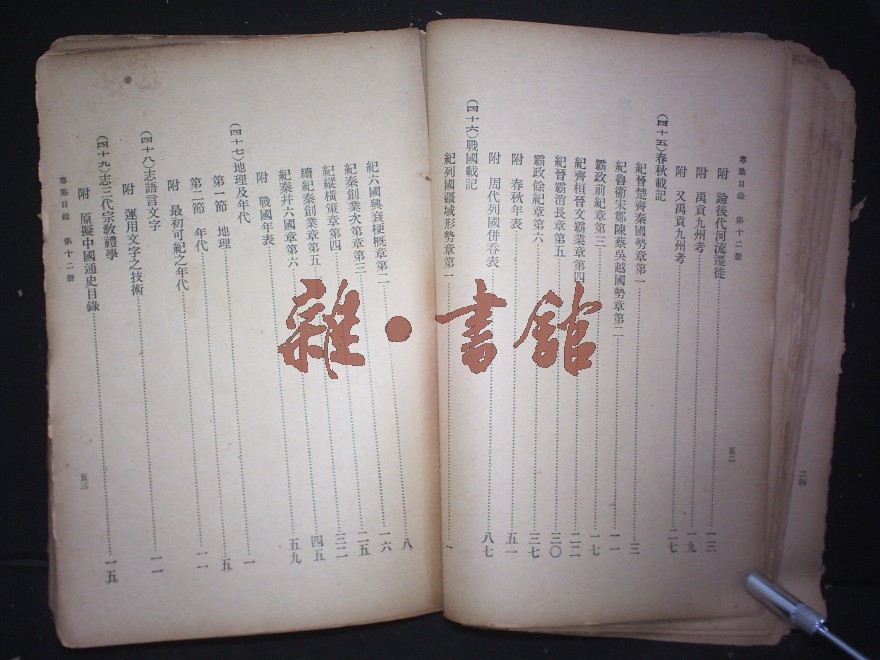 專集目錄 第十二册
五二
附 論後代河流遷徙 一三
附 禹貢九州考 一九
附 又禹貢九州考 二七
(四十五)春秋載記
紀晉楚齊秦國勢章第一 三
紀魯衞宋鄭陳蔡吳越國勢章第二 一一
霸政前紀章第三 一七
紀齊桓晉文霸業章第四 二二
紀晉霸消長章第五 三〇
霸政餘紀章第六 三七
附 春秋年表 五一
附 周代列國併吞表 八七
(四十六)戰國載記
紀列國疆域形勢章第一 一
紀六國興衰梗概章第二 八
紀秦創業次第章第三 一六
紀縱橫策章第四 二五
續紀秦創業章第五 三二
紀秦并六國章第六 四五
附 戰國年表 五九
(四十七)地理及年代
第一節 地理 一
第二節 年代 五
附 最初可紀之年代 一一
(四十八)志語言文字
附 運用文字之技術 一一
(四十九)志三代宗教禮學
附 原擬中國通史目錄 一五
專集目錄 第十二册
五三
二四
雜·書館